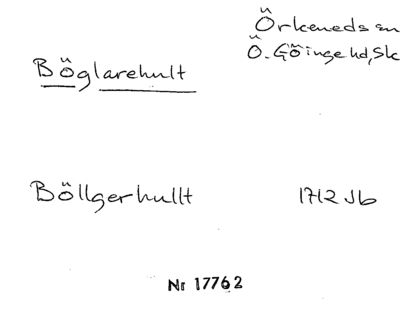 Örkeneds sn
Ö. Göinge hd, Sk
Böglarehult
Böllgerhullt 1712 Jb
Nr 17762